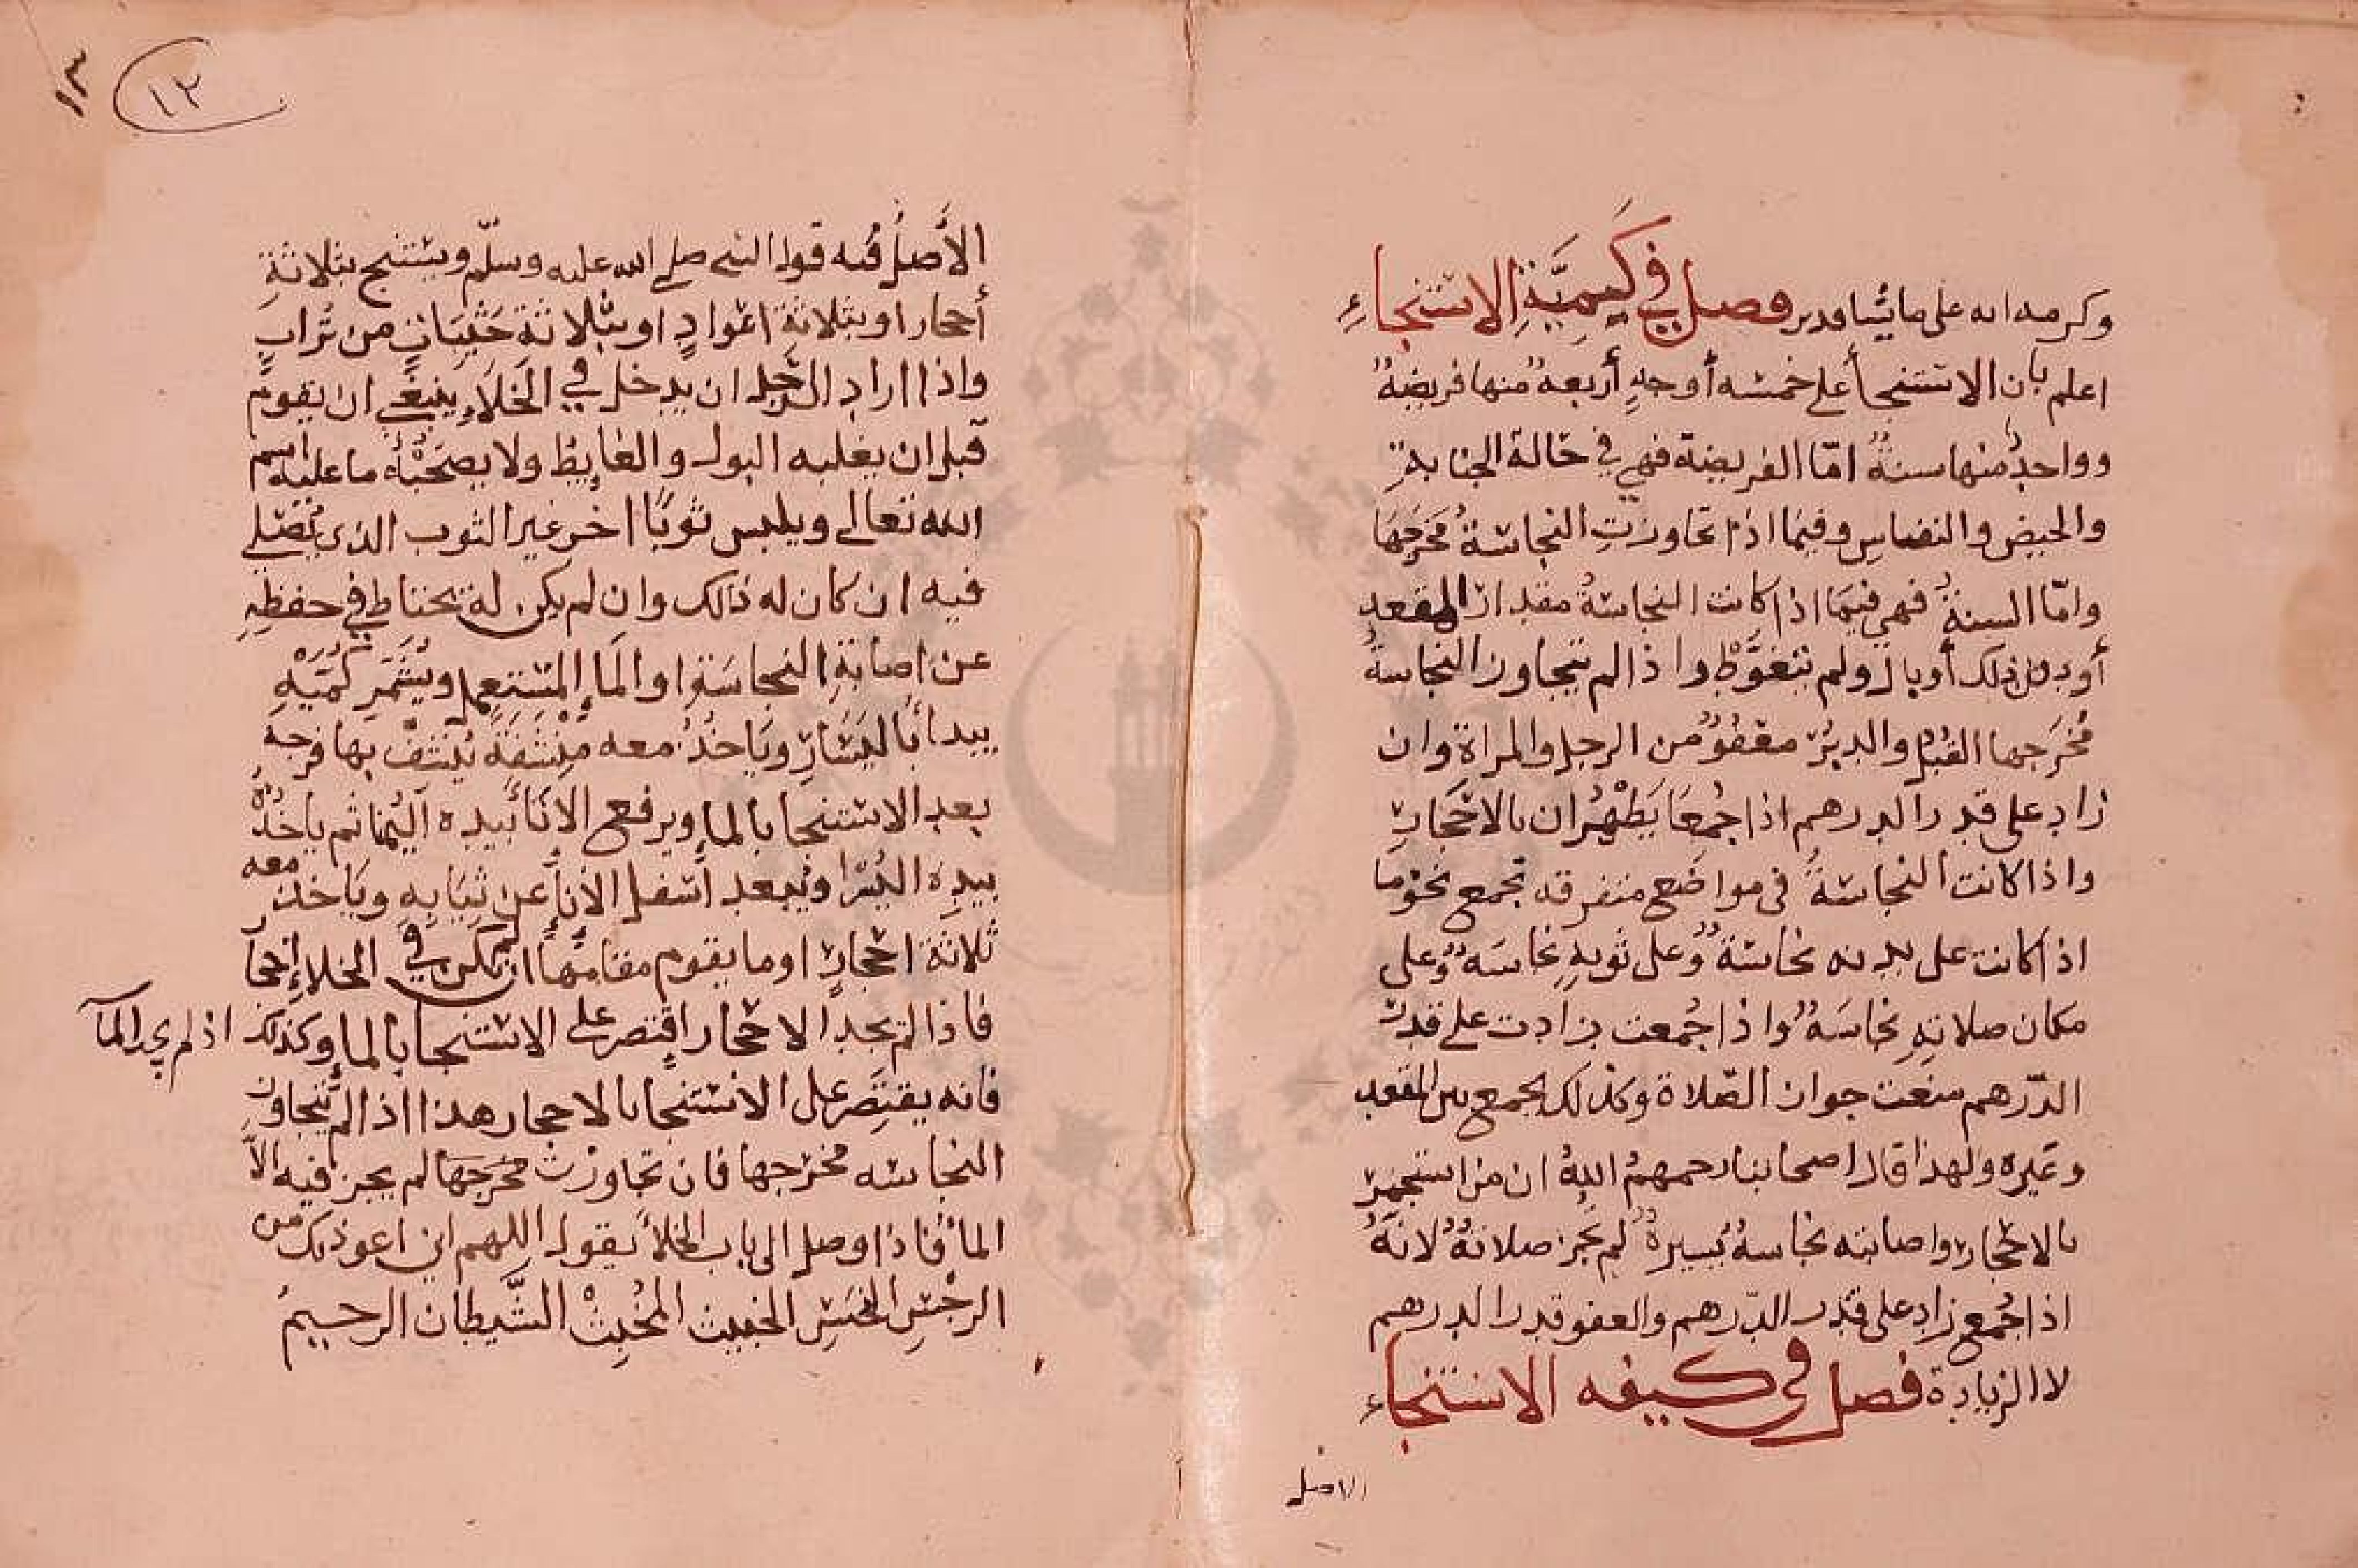 وكرمه انه على ما يشا قدير فصل في كميَّةِ الاستنجاءِ
اعلم بان الاستنجا على خمسه أوجهٍ أربعةٌ منها فريضةٌ
وواحدٌ منها سنةٌ امّا الفريضة فهي في حالة الجنابة
والحيض والنفاس وفيما اذا تجاوزتِ النجاسةُ مخرجَها
وامّا السنةُ فهي فيما اذا كانت النجاسةُ مقدار المقعد
أو دون ذلك أو بال ولم يتغوَّطْ واذا لم تتجاوز النجاسةُ
مُخرَجها القبُل والدبُر معفُوٌ من الرجل والمراة وان
زاد على قدر الدرهم اذا جُمِعَا يَطْهُرْان بالاحجارِ
واذا كانت النجاسةُ في مواضع متفرقه تجمع نحو ما
اذا كانت على بدنه نجاسةٌ وعلى ثوبهِ نجاسَةٌ وعلى
مكان صلاتهِ نجاسَةٌ واذا جُمعت زادت على قدر
الدّرهم منعت جواز الصّلاة وكذلك يجمع بين المقعد
وغيره ولهذا قال اصحابنا رحمهمُ اللهُ ان من استجمر
بالاحجار واصابته نجاسةٌ يسيرةٌ لم تجز صلاتهُ لانهُ
اذا جُمع زاد على قدر الدّرهم والعفو قدر الدرهم
لا الزيادة فصل في كيفيه الاستنجاء
الاصل
١٣
١٣
الأصلُ فيه قول النبي صلى الله عليه وسلّم ويستنج بثلاثةِ
أحجار او بثلاثةِ اعوادٍ او بثلاثة حَثَيَاتٍ من تُرابٍ
واذا اراد الرَّجل ان يدخل في الخَلاءِ ينبغي ان يقوم
قبل ان يغلبه البول والغايطُ ولا يصحَبُه ما عليه اسم
الله تعالى ويلبس ثوبًا اخر غير الثوب الذي يُصَلي
فيه ان كان له ذلك وان لم يكن له يحتاط في حفظِهِ
عن اصابةِ النجاسَةِ او المَاءِ المُستعمل ويُشَمِّر كُمَّيْهِ
يبدا باليَسَارِ ويَاخذُ معه مِنْشَفَةً يُنَشّف بها فرجهُ
بعد الاستنجا بالما ويرفع الإنَا بيده اليُمنا ثم ياخذُهُ
بيدِه اليُسْرا ويُبعد اسْفل الأناء عن ثيابِهِ ويَاخذ معه
ثلاثة احجارٍ او ما يقوم مقامَها ان لم يكن في الخلاءِ احجا
فاذا لم يجد الاحجار اقتصر على الاستنجا بالما وكذلك اذ لم يجد المآ
فانه يقتصر على الاستنجا بالاحجار هذا اذا لم تتجاوز
النجاسه مخرجها فان تجاوزتْ مخرَجَها لم يجز فيه الاّ
الما فاذا وصل الى باب الخلا يقول اللهم اني اعوذ بك من
الرجْسِ النجَسِ الخبيث المُخْبِثْ الشَّيطان الرحيمُ